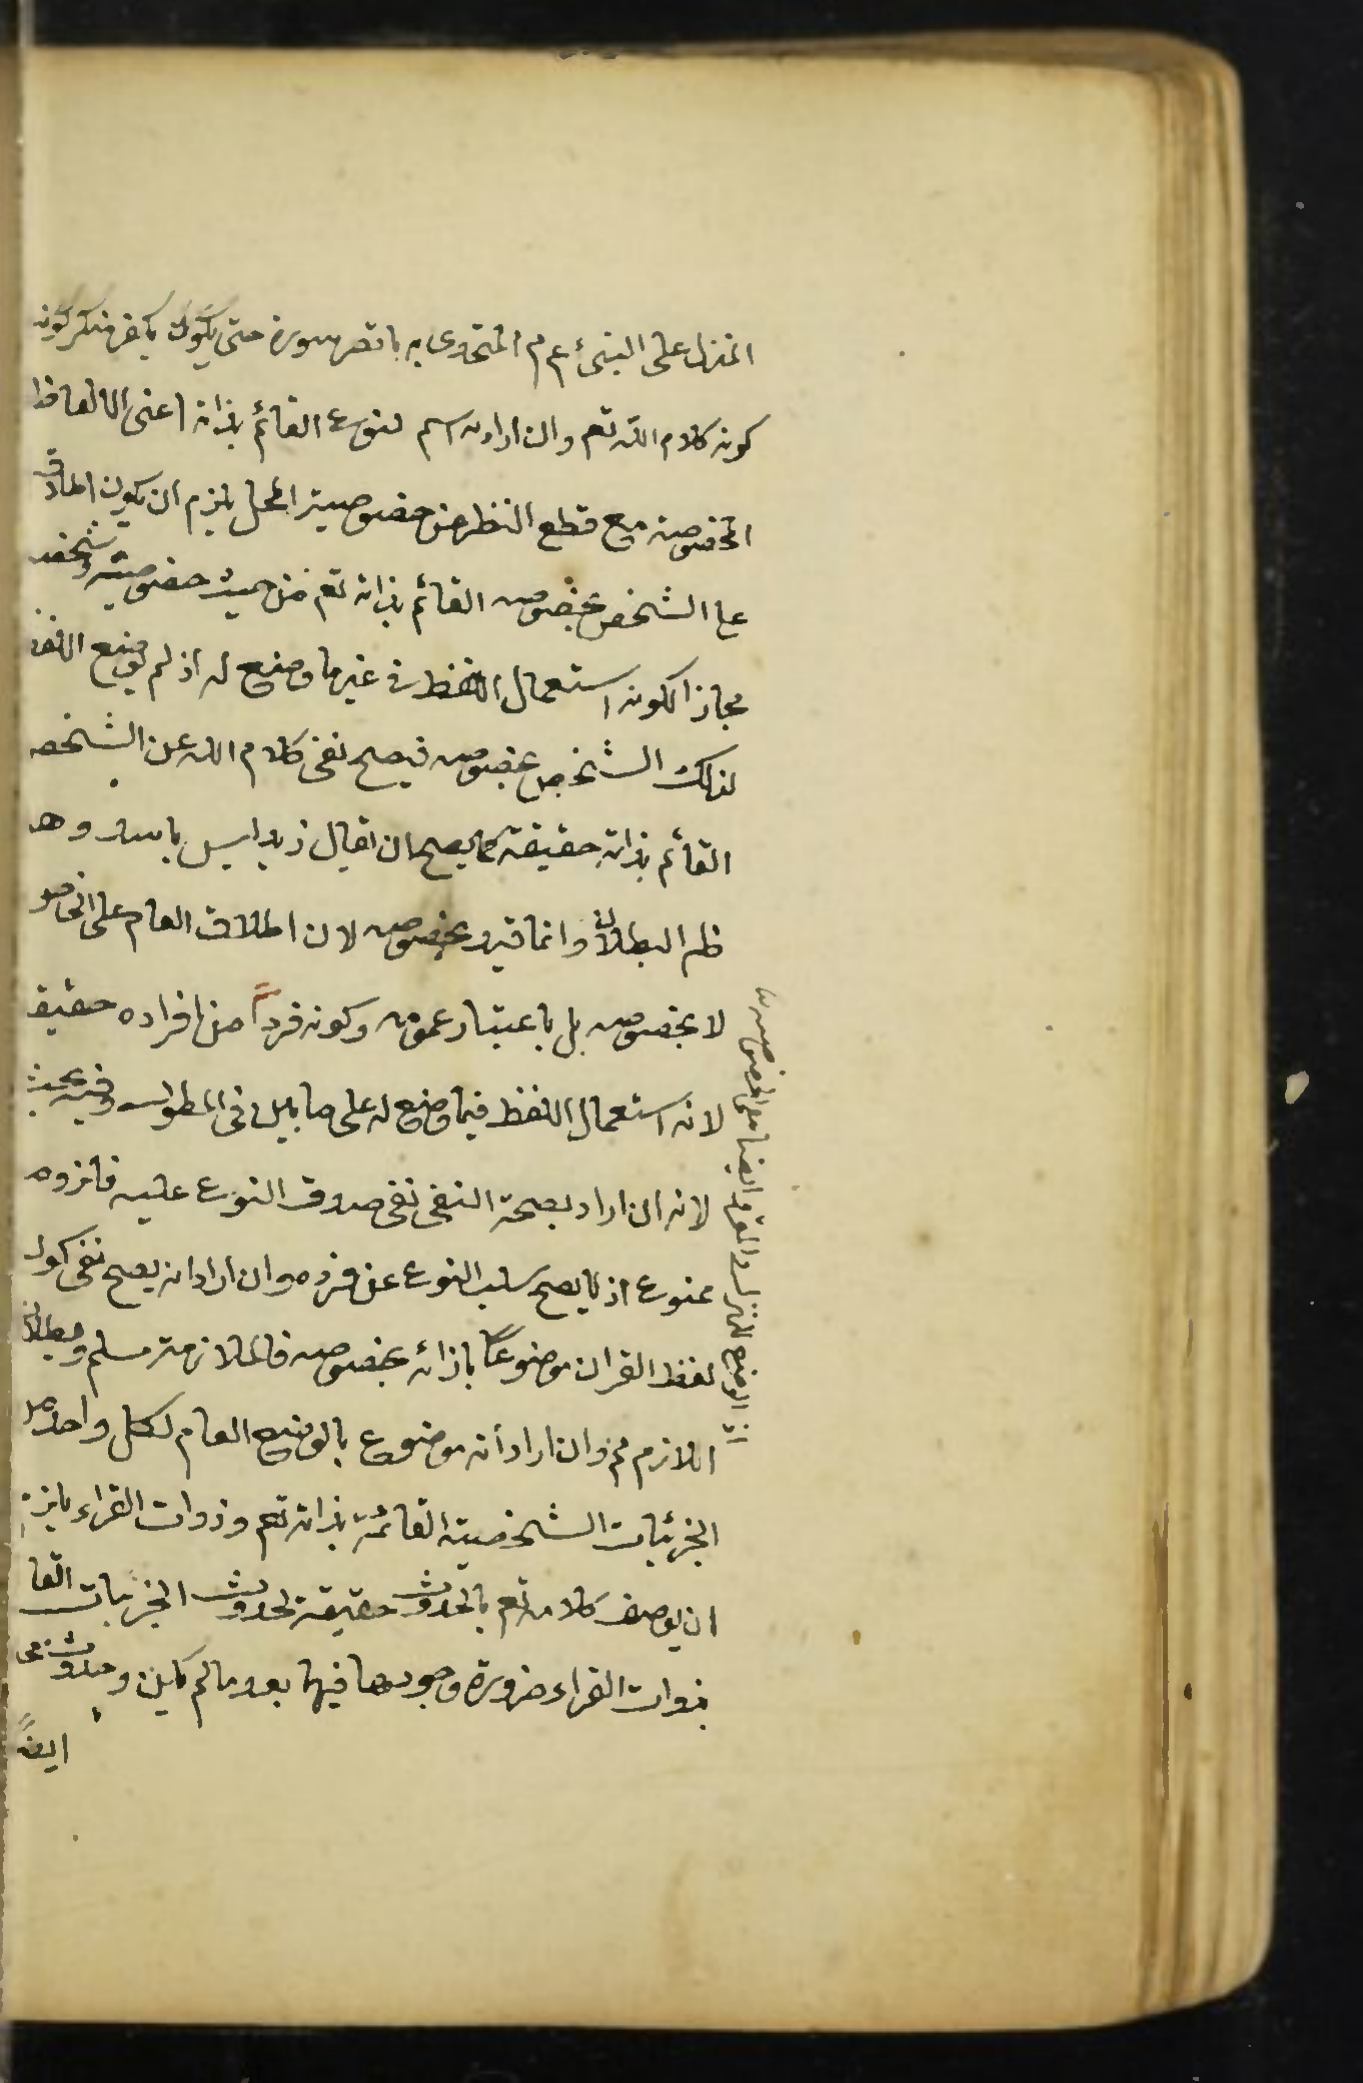 المنزل على النبئ عم م المتحدى به باقصر سورة حتى يكون يكفر منكر كونه
كونه كلام الله تعم وان اراد به اسم لنوع القائم بذاته اعنى الالفاظ
المخصوصة مع قطع النظر عن خصوصية المحل يلزم ان يكون اطلاق
على الشخص بخصوصه القائم بذاته تعم من حيث خصوصيته وشخصه
مجازا لكونه استعمال اللفظ فى غير ما وضع له اذ لم يوضع اللفظ
لذلك الشخص بخصوصه فيصح نفى كلام الله عن الشخص
القائم بذاته حقيقة كما يصح ان يقال زيد ليس باسد وهو
ظم البطلان وانما قيد بخصوصه لان اطلاق العام على الخاص
لا بخصوصه بل باعتبار عمومه وكونه فرداً من افراده حقيقة
لانه استعمال اللفظ فيما وضع له على ما بين فى المطول وفيه بحث
لانه ان اراد بصحة النفى نفى صدق النوع عليه فلزومه
ممنوع اذ لا يصح سلب النوع عن فرده وان اراد انه يصح نفى كون
لفظ القران موضوعاً بازائه بخصوصه فالملازمة مسلم وبطلان
اللازم مم وان اراد أنه موضوع بالوضع العام لكل واحد من
الجزئيات الشخصية القائمة بذاته تعم وذوات القراء يلزم
ان يوصف كلامه تعم بالحدوث حقيقة لحدوث الجزئيات القا
بذوات القراء ضرورة وجودها فيها بعد ما لم يكن وحدوث
ايضاً